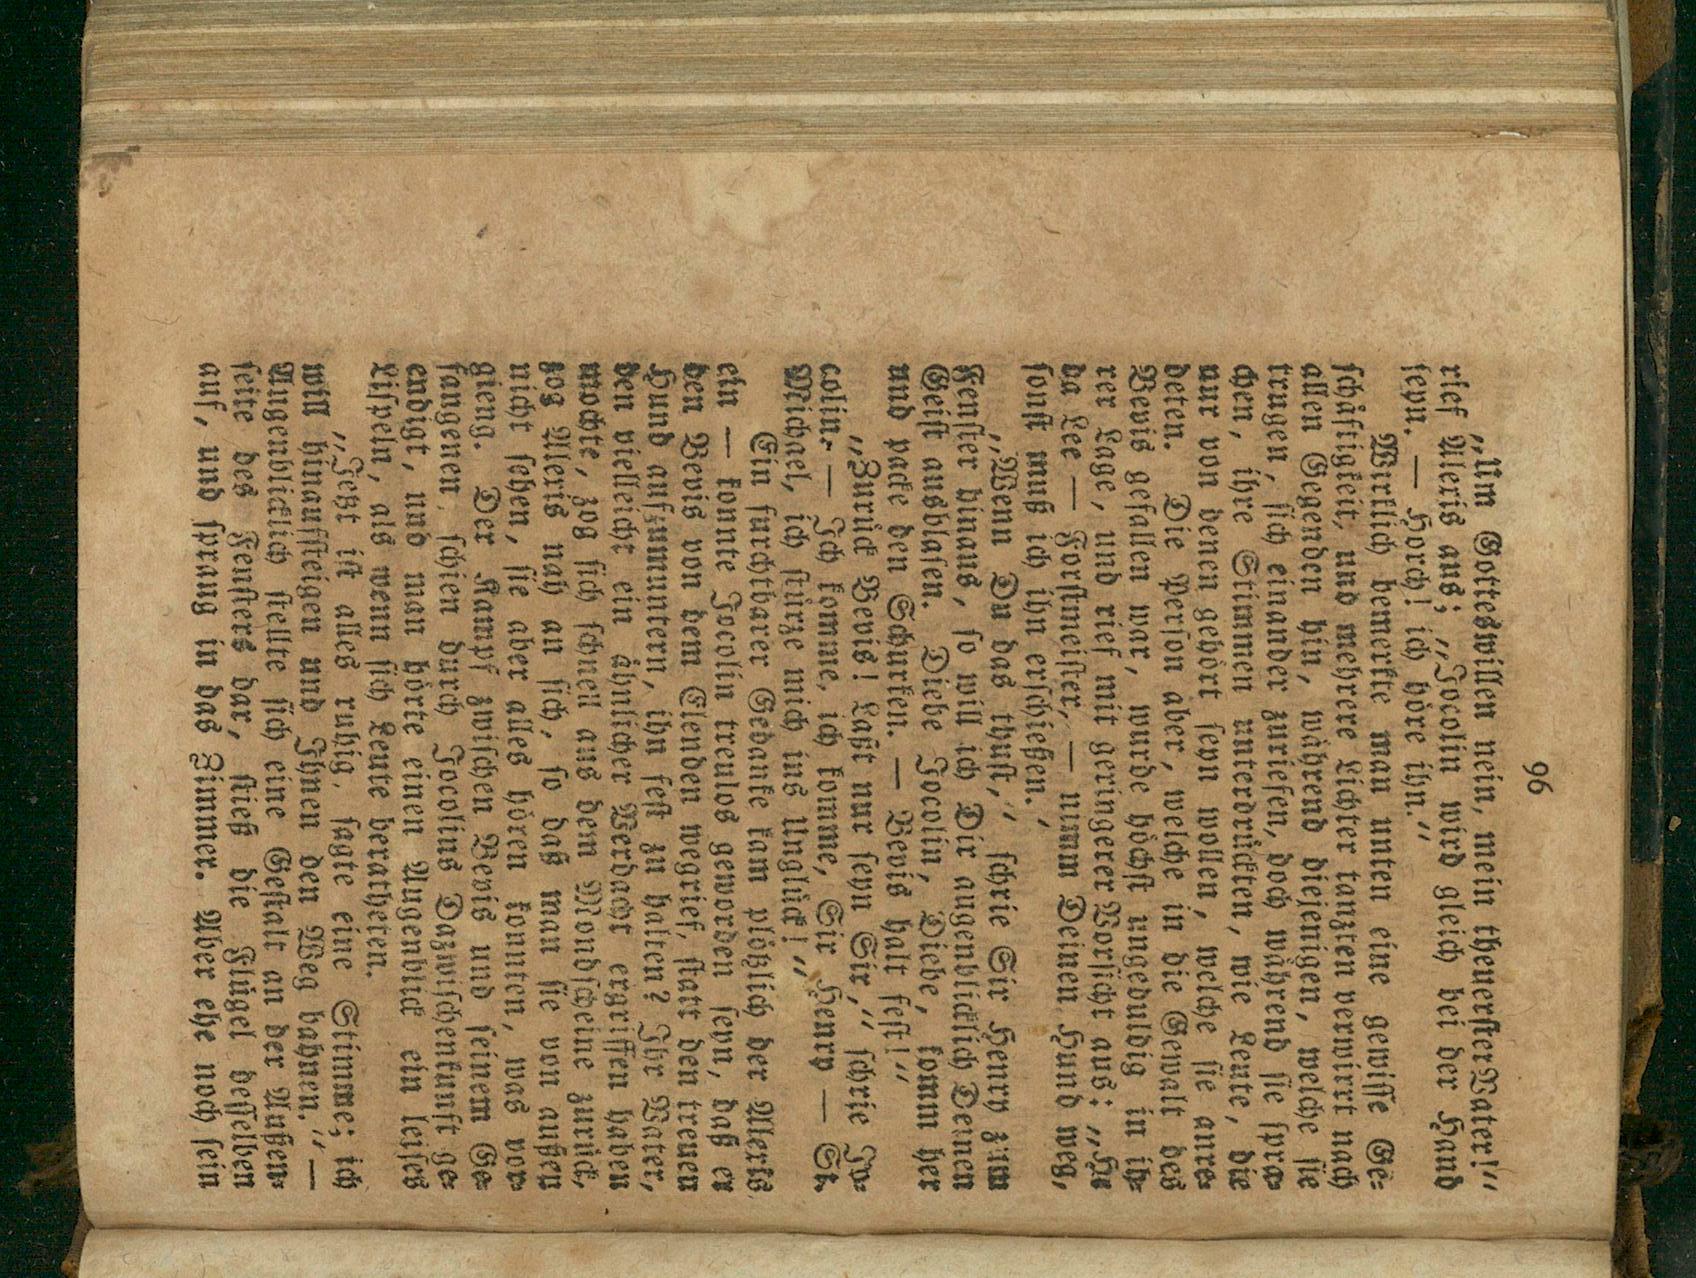 96
„Um Gotteswillen nein, mein theuerster Vater!“
rief Alexis aus; „Jocolin wird gleich bei der Hand
seyn. — Horch! ich höre ihn.“
Wirklich bemerkte man unten eine gewisse Ge-
schäftigkeit, und mehrere Lichter tanzten verwirrt nach
allen Gegenden hin, während diejenigen, welche sie
trugen, sich einander zuriefen, doch während sie spra-
chen, ihre Stimmen unterdrückten, wie Leute, die
nur von denen gehört seyn wollen, welche sie anre-
deten. Die Person aber, welche in die Gewalt des
Bevis gefallen war, wurde höchst ungeduldig in ih-
rer Lage, und rief mit geringerer Vorsicht aus: „He
da Lee — Forstmeister, — nimm Deinen Hund weg,
sonst muß ich ihn erschießen.“
„Wenn Du das thust,“ schrie Sir Henry zum
Fenster hinaus, so will ich Dir augenblicklich Deinen
Geist ausblasen. Diebe Jocolin, Diebe, komm her
und packe den Schurken. — Bevis halt fest!“
„Zurück Bevis! Laßt nur seyn Sir,“ schrie Jo-
colin. — Ich komme, ich komme, Sir Henry — St.
Michael, ich stürze mich ins Unglück!“
Ein furchtbarer Gedanke kam plötzlich der Alexis
ein — konnte Jocolin treulos geworden seyn, daß er
den Bevis von dem Elenden wegrief, statt den treuen
Hund aufzumuntern, ihn fest zu halten? Ihr Vater,
den vielleicht ein ähnlicher Verdacht ergriffen haben
mochte, zog sich schnell aus dem Mondscheine zurück,
zog Alexis nah an sich, so daß man sie von außen
nicht sehen, sie aber alles hören konnten, was vor-
gieng. Der Kampf zwischen Bevis und seinem Ge-
fangenen, schien durch Jocolins Dazwischenkunft ge-
endigt, und man hörte einen Augenblick ein leises
Lispeln, als wenn sich Leute beratheten.
„Jetzt ist alles ruhig, sagte eine Stimme; ich
will hinaufsteigen und Ihnen den Weg bahnen.“ —
Augenblicklich stellte sich eine Gestalt an der Außen-
seite des Fensters dar, stieß die Flügel desselben
auf, und sprang in das Zimmer. Aber ehe noch sein